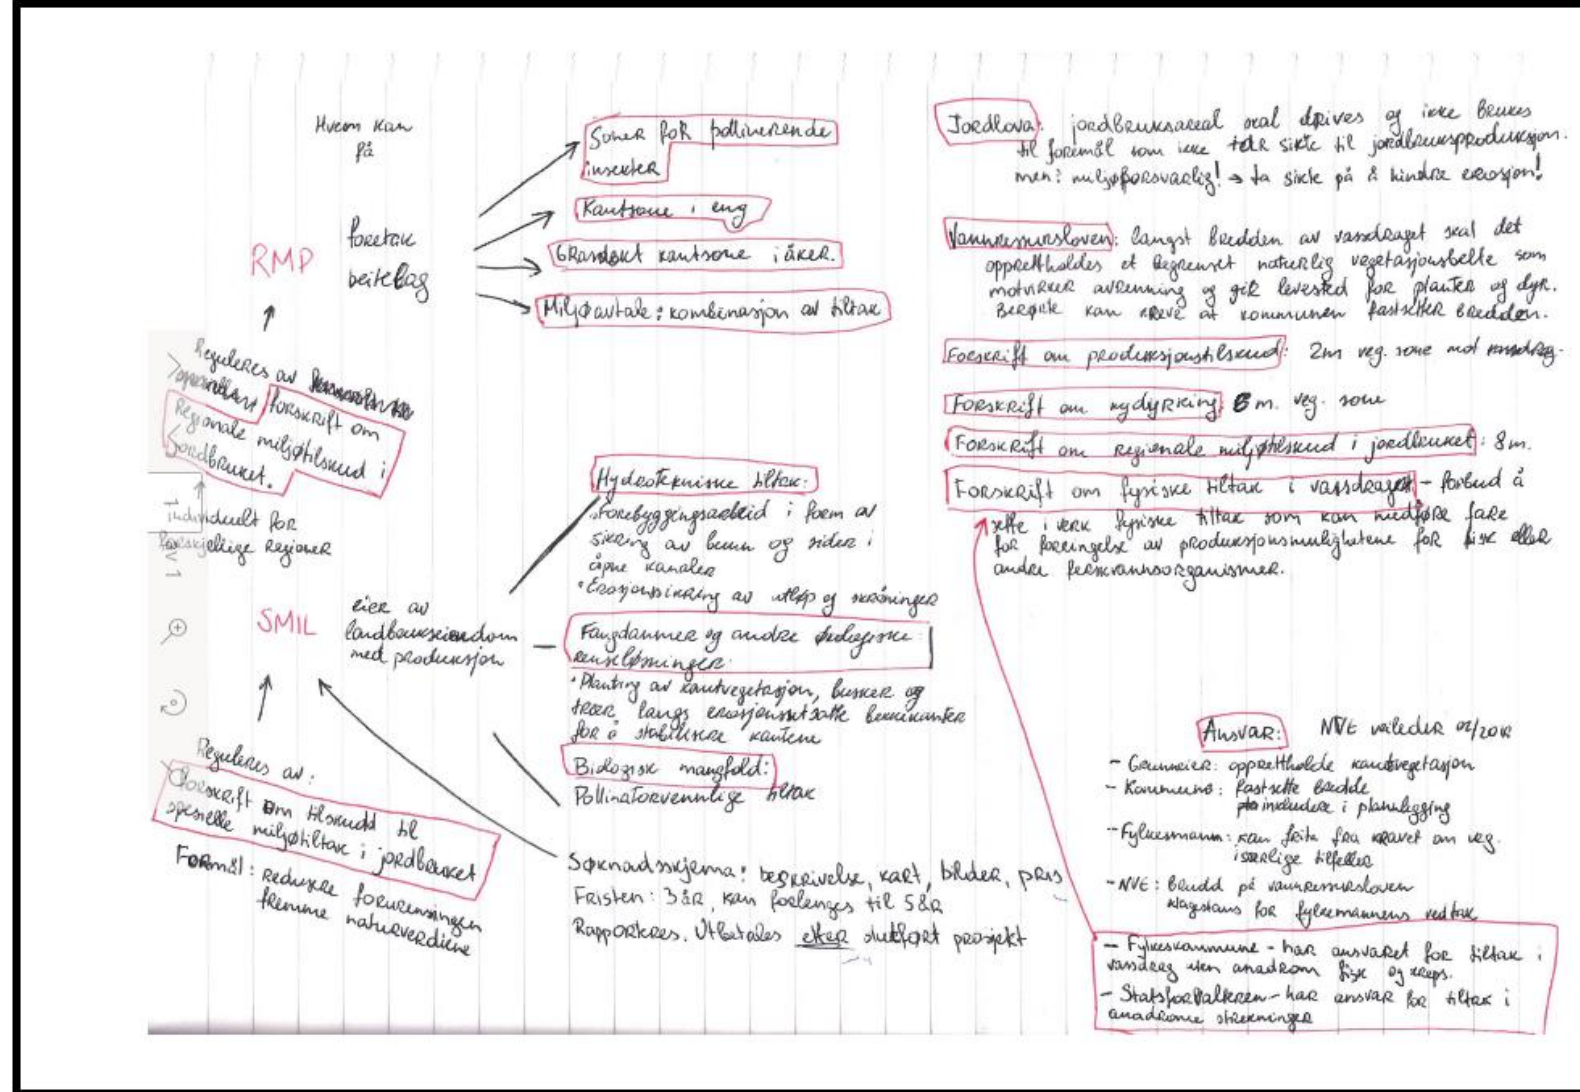 Hvem kan
få
RMP
foretak
beitelag
Soner for pollinerende
insekter
Kantsone i eng
Grasdekt kantsone i åker.
Miljøavtale: kombinasjon av tiltak
Reguleres av
forskrift om
Regionale miljøtilskud i
jordbruket.
individuelt for
forskjellige regioner
SMIL
eier av
landbrukseiendom
med produksjon
Hydrotekniske tiltak:
• Forebyggingsarbeid i form av
sikring av bunn og sider i
åpne kanaler
• Erosjonssikring av utløp og skråninger
Fangdammer og andre økologiske
renseløsninger:
• Planting av kantvegetasjon, busker og
trær langs erosjonsutsatte bekkekanter
for å stabilisere kantene
Biologisk mangfold:
Pollinatorvennlige tiltak
Reguleres av:
Forskrift om tilskudd til
spesielle miljøtiltak i jordbruket
Formål: redusere forurensingen
fremme naturverdiene
Søknadsskjema: beskrivelse, kart, bilder, pris
Fristen: 3 år, kan forlenges til 5 år
Rapporteres. Utbetales etter sluttført prosjekt
Jordlova: jordbruksareal skal drives og ikke brukes
til formål som ikke tar sikte til jordbruksproduksjon.
men: miljøforsvarlig! → ta sikte på å hindre erosjon!
Vannressursloven: langst bredden av vassdraget skal det
opprettholdes et begrenset naturlig vegetasjonsbelte som
motvirker avrenning og gir levested for planter og dyr.
Berørte kan kreve at kommunen fastsetter bredden.
Forskrift om produksjonstilskud: 2m veg. sone mot vassdrag.
Forskrift om nydyrking: 6 m. veg. sone
Forskrift om regionale miljøtilskud i jordbruket: 8m.
Forskrift om fysiske tiltak i vassdraget - forbud å
sette i verk fysiske tiltak som kan medføre fare
for forringelse av produksjonsmulighetene for fisk eller
andre ferskvannsorganismer.
Ansvar: NVE veileder 02/2018
- Grunneier: opprettholde kantvegetasjon
- Kommune: fastsette bredde
inkludere i planlegging
- Fylkesmann: kan frita fra kravet om veg.
i særlige tilfeller
- NVE: brudd på vannressursloven
klageinstans for fylkemannens vedtak
- Fylkeskommune - har ansvaret for tiltak i
vassdrag uten anadrom fisk og kreps.
- Statsforvalteren - har ansvar for tiltak i
anadrome strekninger